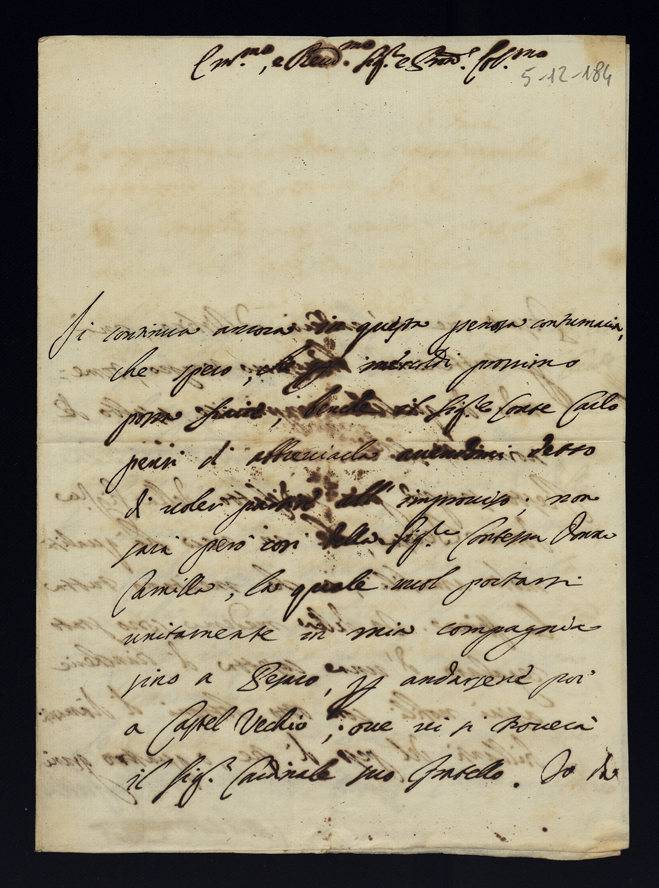 Em.mo, e Rend.mo Sig.r e Pron.e Col.mo
5-12-184
Si continua ancora in questa penosa contumacia,
che spero, che mercordi prossimo
possa finire, benche il Sig.r Conte Carlo
pensi di abbreviarla avendomi detto
di voler partire all' improviso; non
sarà però così della Sig.ra Contessa Donna
Camilla, la quale vuol portarsi
unitamente in mia compagnia
sino a Pesaro, per andarsene poi
a Castel Vechio, ove vi si troverà
il Sig.r Cardinale suo fratello. Io